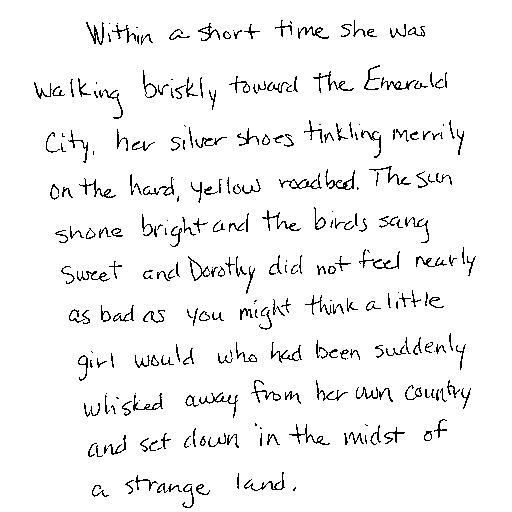 Within a short time she was
walking briskly toward the Emerald
City, her silver shoes tinkling merrily
on the hard, yellow roadbed. The sun
shone bright and the birds sang
sweet and Dorothy did not feel nearly
as bad as you might think a little
girl would who had been suddenly
whisked away from her own country
and set down in the midst of
a strange land.